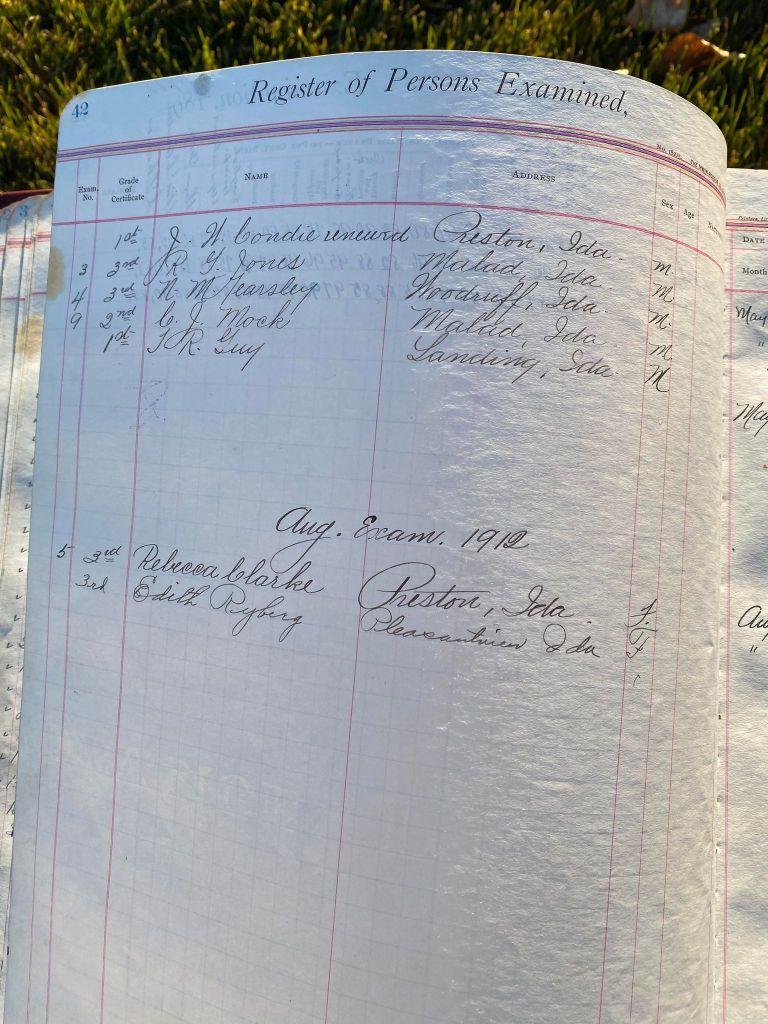 42
Register of Persons Examined,
Exam. No. Grade of Certificate NAME ADDRESS Sex Age
1st J. H. Condie renewd Preston, Ida. m.
3 2nd R. G. Jones Malad, Ida M
4 3rd N. M. Tearsley Woodruff, Ida. M.
9 2nd C. J. Mock Malad, Ida M.
1st T. R. Guy Landing, Ida M
Aug. Exam. 1912
5 2nd Rebecca Clarke Preston, Ida. F.
3rd Edith Ryberg Pleasantview Ida F
DATE
Month
May
"
May
"